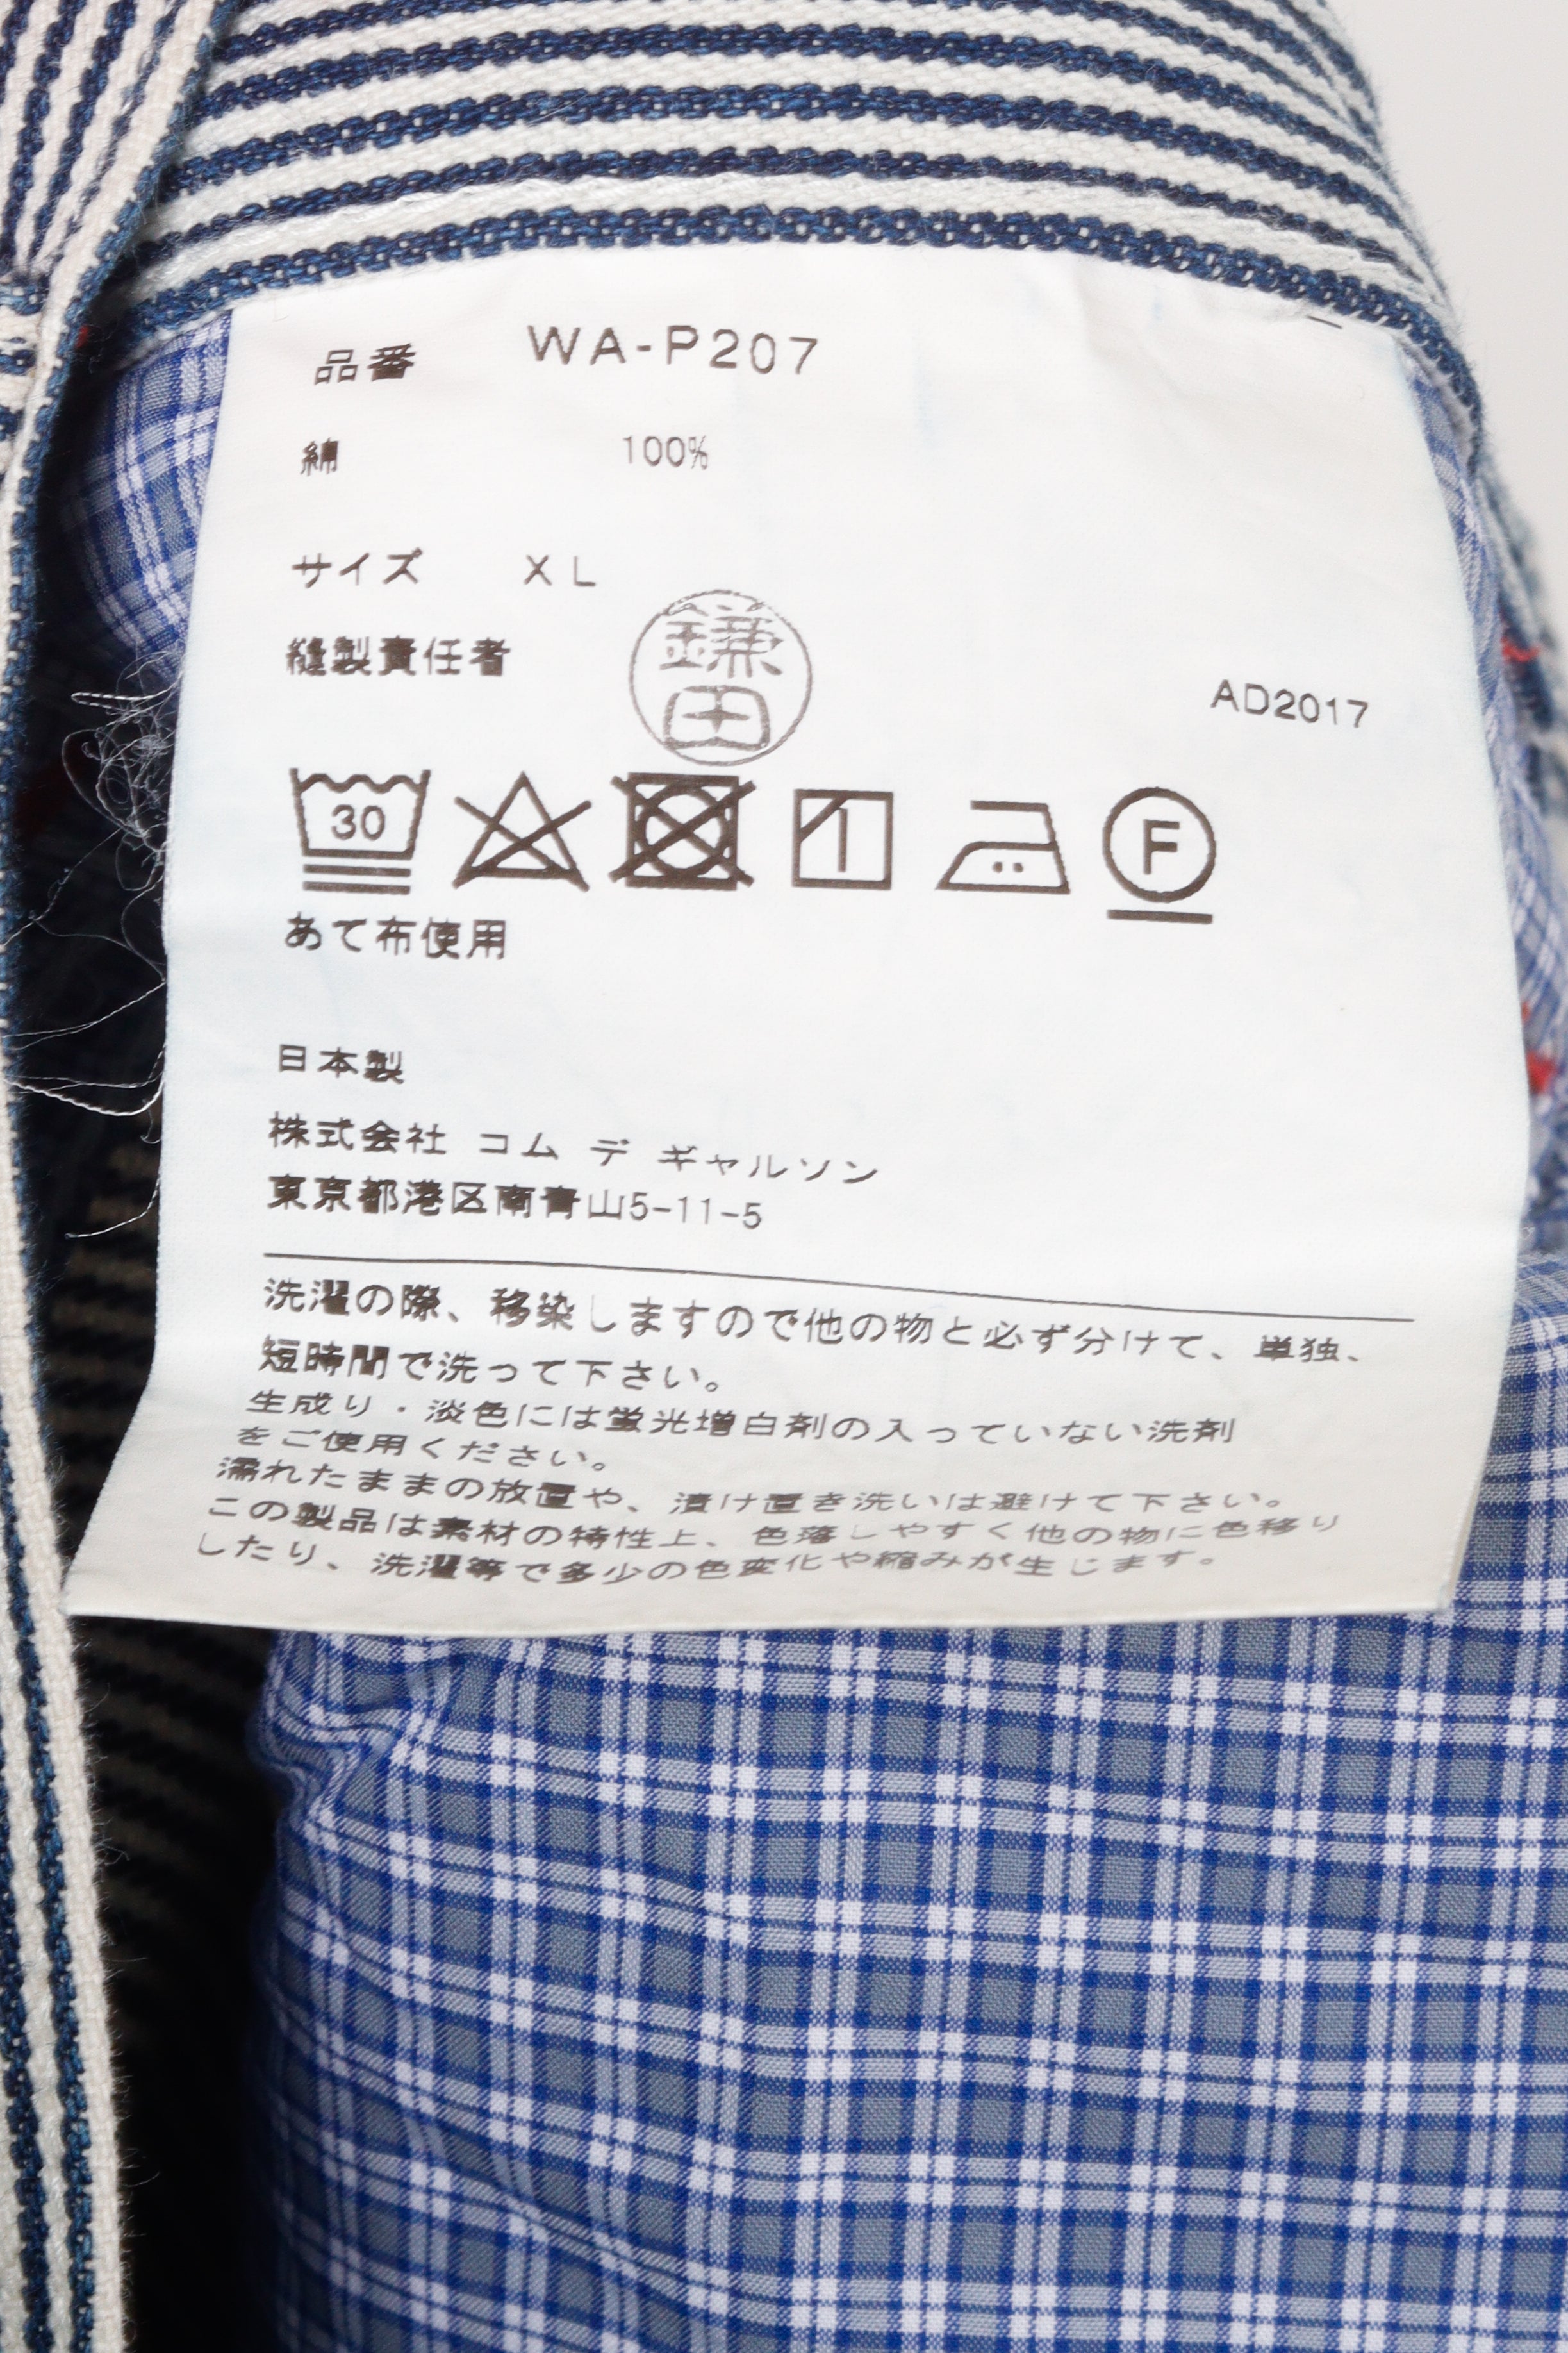 品番 WA-P207
綿 100%
サイズ XL
縫製責任者 鎌田
AD2017
30 F
あて布使用
日本製
株式会社 コム デ ギャルソン
東京都港区南青山5-11-5
洗濯の際、移染しますので他の物と必ず分けて、単独、
短時間で洗って下さい。
生成り・淡色には蛍光増白剤の入っていない洗剤
をご使用ください。
濡れたままの放置や、漬け置き洗いは避けて下さい。
この製品は素材の特性上、色落しやすく他の物に色移り
したり、洗濯等で多少の色変化や縮みが生じます。